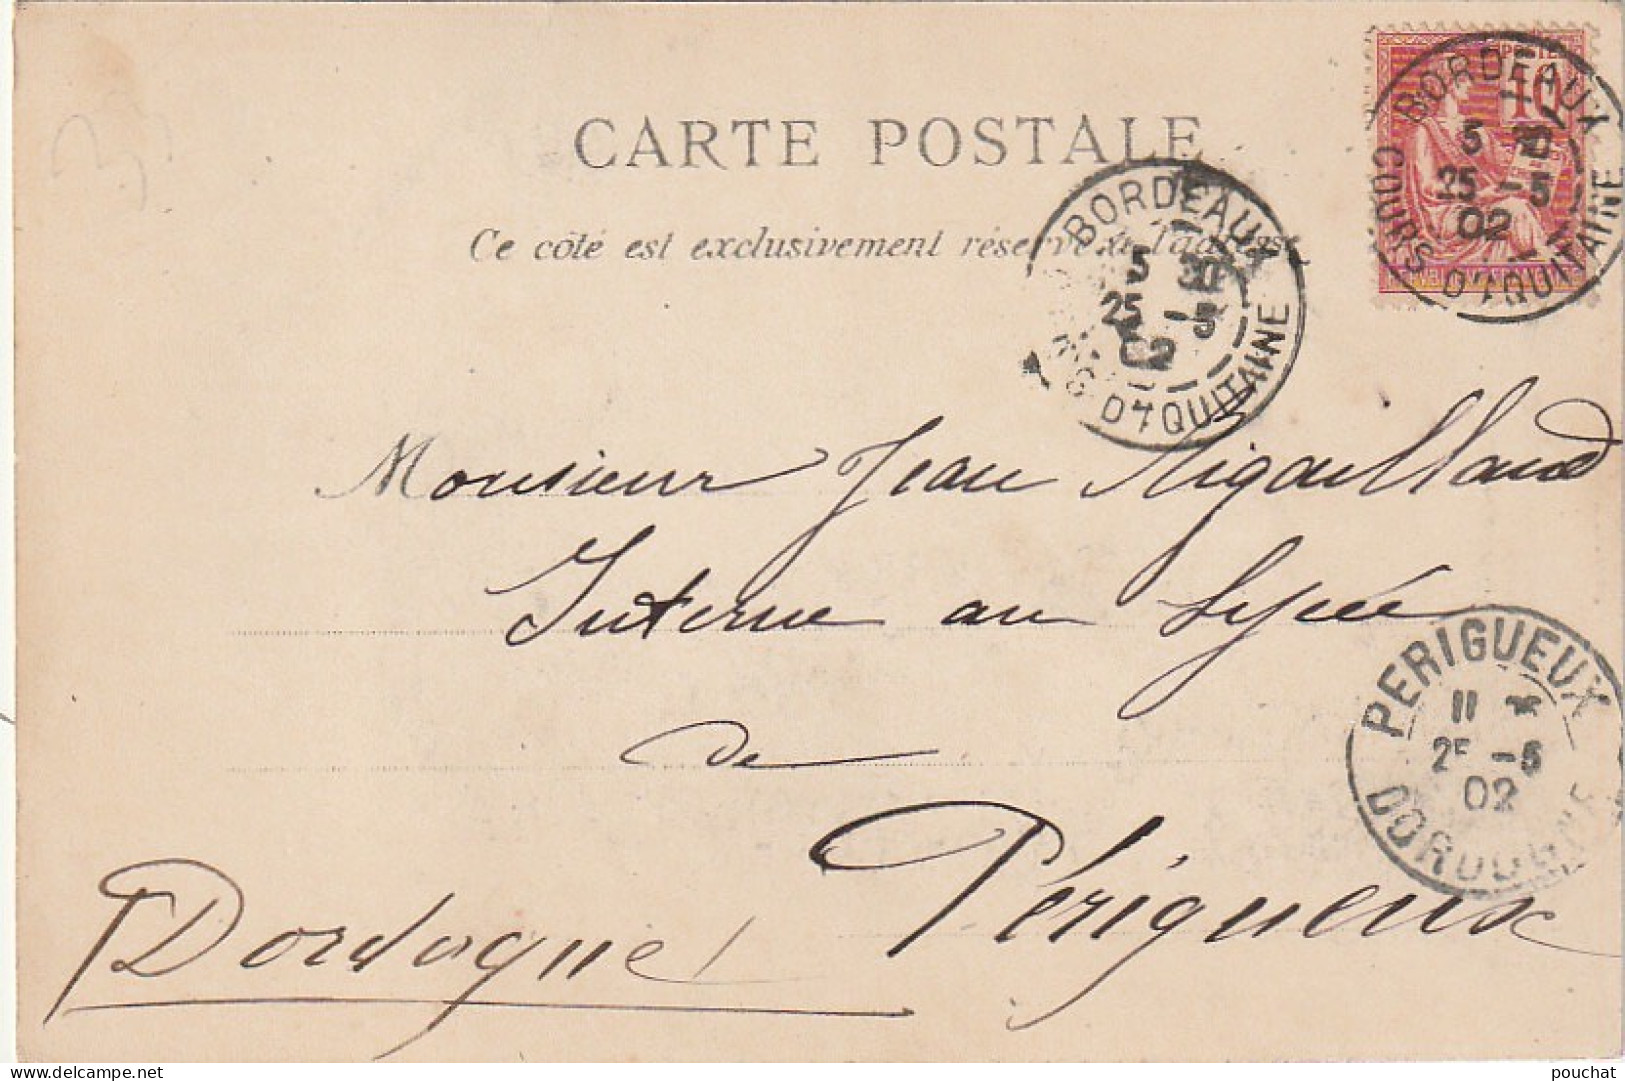 CARTE POSTALE
Ce côté est exclusivement réservé à l'adresse
POSTES
10
BORDEAUX
5
25 -5
02
COURS D'AQUITAINE
BORDEAUX
5
25 -5
02
D'AQUITAINE
Monsieur Jean Rigaillaud
Interne au Lycée
de
Périgueux
Dordogne
PERIGUEUX
11
25 -5
02
DORDOGNE
delcampe.net
pouchat